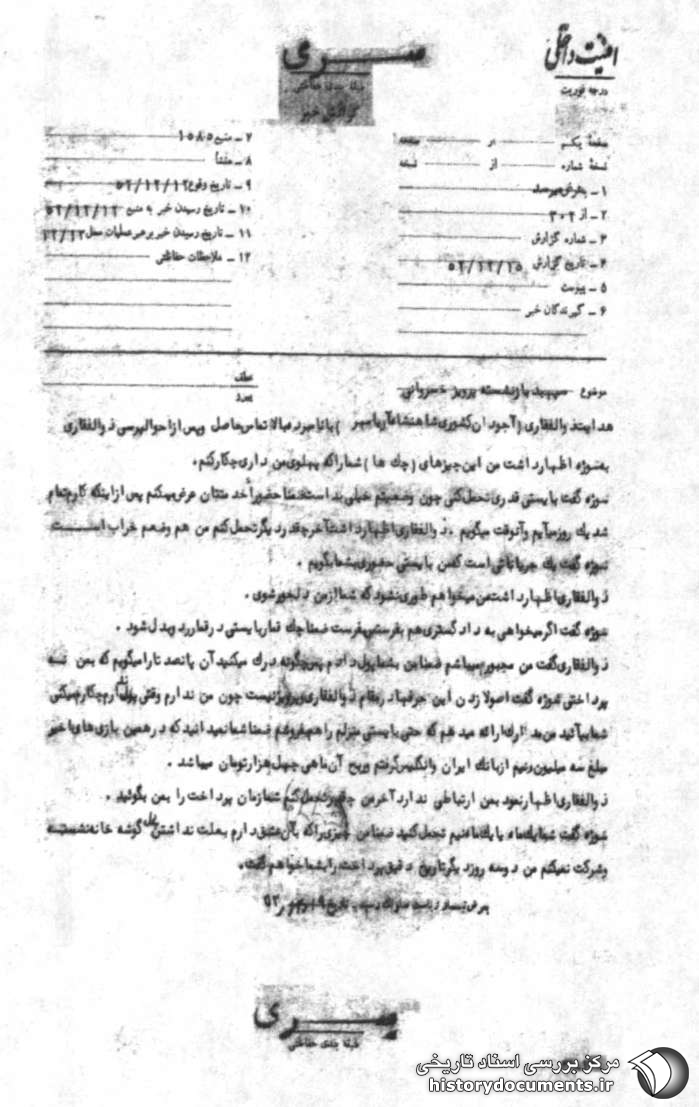 امنیت داخلی
سری
درجه فوریت
طبقه بندی حفاظتی
گزارش خبر
صفحهٔ یکم در صفحه
نسخهٔ شماره از نسخه
۱ - به عرض میرسد
۲ - از ۳۰۲
۳ - شماره گزارش
۴ - تاریخ گزارش ۵۲/۱۲/۱۵
۵ - پیوست
۶ - گیرندگان خبر
۷ - منبع ۱۰۸۵
۸ - منشأ
۹ - تاریخ وقوع ۵۲/۱۲/۱۲
۱۰ - تاریخ رسیدن خبر به منبع ۵۲/۱۲/۱۲
۱۱ - تاریخ رسیدن خبر برهبر عملیات محل ۱۲/۱۳
۱۲ - ملاحظات حفاظتی
موضوع - سپهبد بازنشسته پرویز خسروانی
عطف
پیرو
هدایت ذوالفقاری (آجودان کشوری شاهنشاه آریامهر ) با نامبرده بالا تماس حاصل وپس از احوالپرسی ذوالفقاری
به سوژه اظهارداشت من این چیزهای (چک ها ) شما را که پهلوی من داری چکارکنم.
سوژه گفت بایستی قدری تحمل کنی چون وضعیتم خیلی بد است ضمنا حضوراً خدمتتان عرض میکنم پس از اینکه کارم تمام
شد یک روز میآیم وآنوقت میگویم . ذوالفقاری اظهارداشت آخر چقدر دیگر تحمل کنم من هم وضعم خراب است
سوژه گفت یک جریاناتی است که من بایستی حضوری بشما بگویم .
ذوالفقاری اظهارداشت من میخواهم طوری نشود که شما از من دلخور شوی .
سوژه گفت اگر میخواهی به دادگستری هم بفرستی بفرست ضمنا چک قمار بایستی در قمار رد وبدل شود .
ذوالفقاری گفت من مجبور میباشم ضمنا من بشما پول دادم پس چگونه درک میکنید آن پانصد تا را میگویم که بمن نسه
پرداختی سوژه گفت اصولا زدن این حرفها در مقام ذوالفقاری و پرویز نیست چون من ندارم وقتی پول ندارم چکار میکنی
شما بیائید من مدارک ارائه میدهم که حتی بایستی منزلم را هم بفروشم ضمنا شما نمیدانید که در همین بازی های با خبر
مبلغ سه میلیون ونیم از بانک ایران وانگلیس گرفتم وربح آن ماهی چهل هزار تومان میباشد .
ذوالفقاری اظهار نمود بمن ارتباطی ندارد آخر من چقدر تحمل کنم شما زمان پرداخت را بمن بگوئید .
سوژه گفت شما یک ماه یا یک ماه ونیم تحمل کنید ضمنا من چیزی را که بآن عشق دارم بعلت نداشتن پول گوشه خانه نشسته
وشرکت نمیکنم من دوسه روز دیگر تاریخ دقیق پرداخت را بشما خواهم گفت .
بعرض تیمسار ریاست ساواک رسید . تاریخ
سری
طبقه بندی حفاظتی
مرکز بررسی اسناد تاریخی
historydocuments.ir